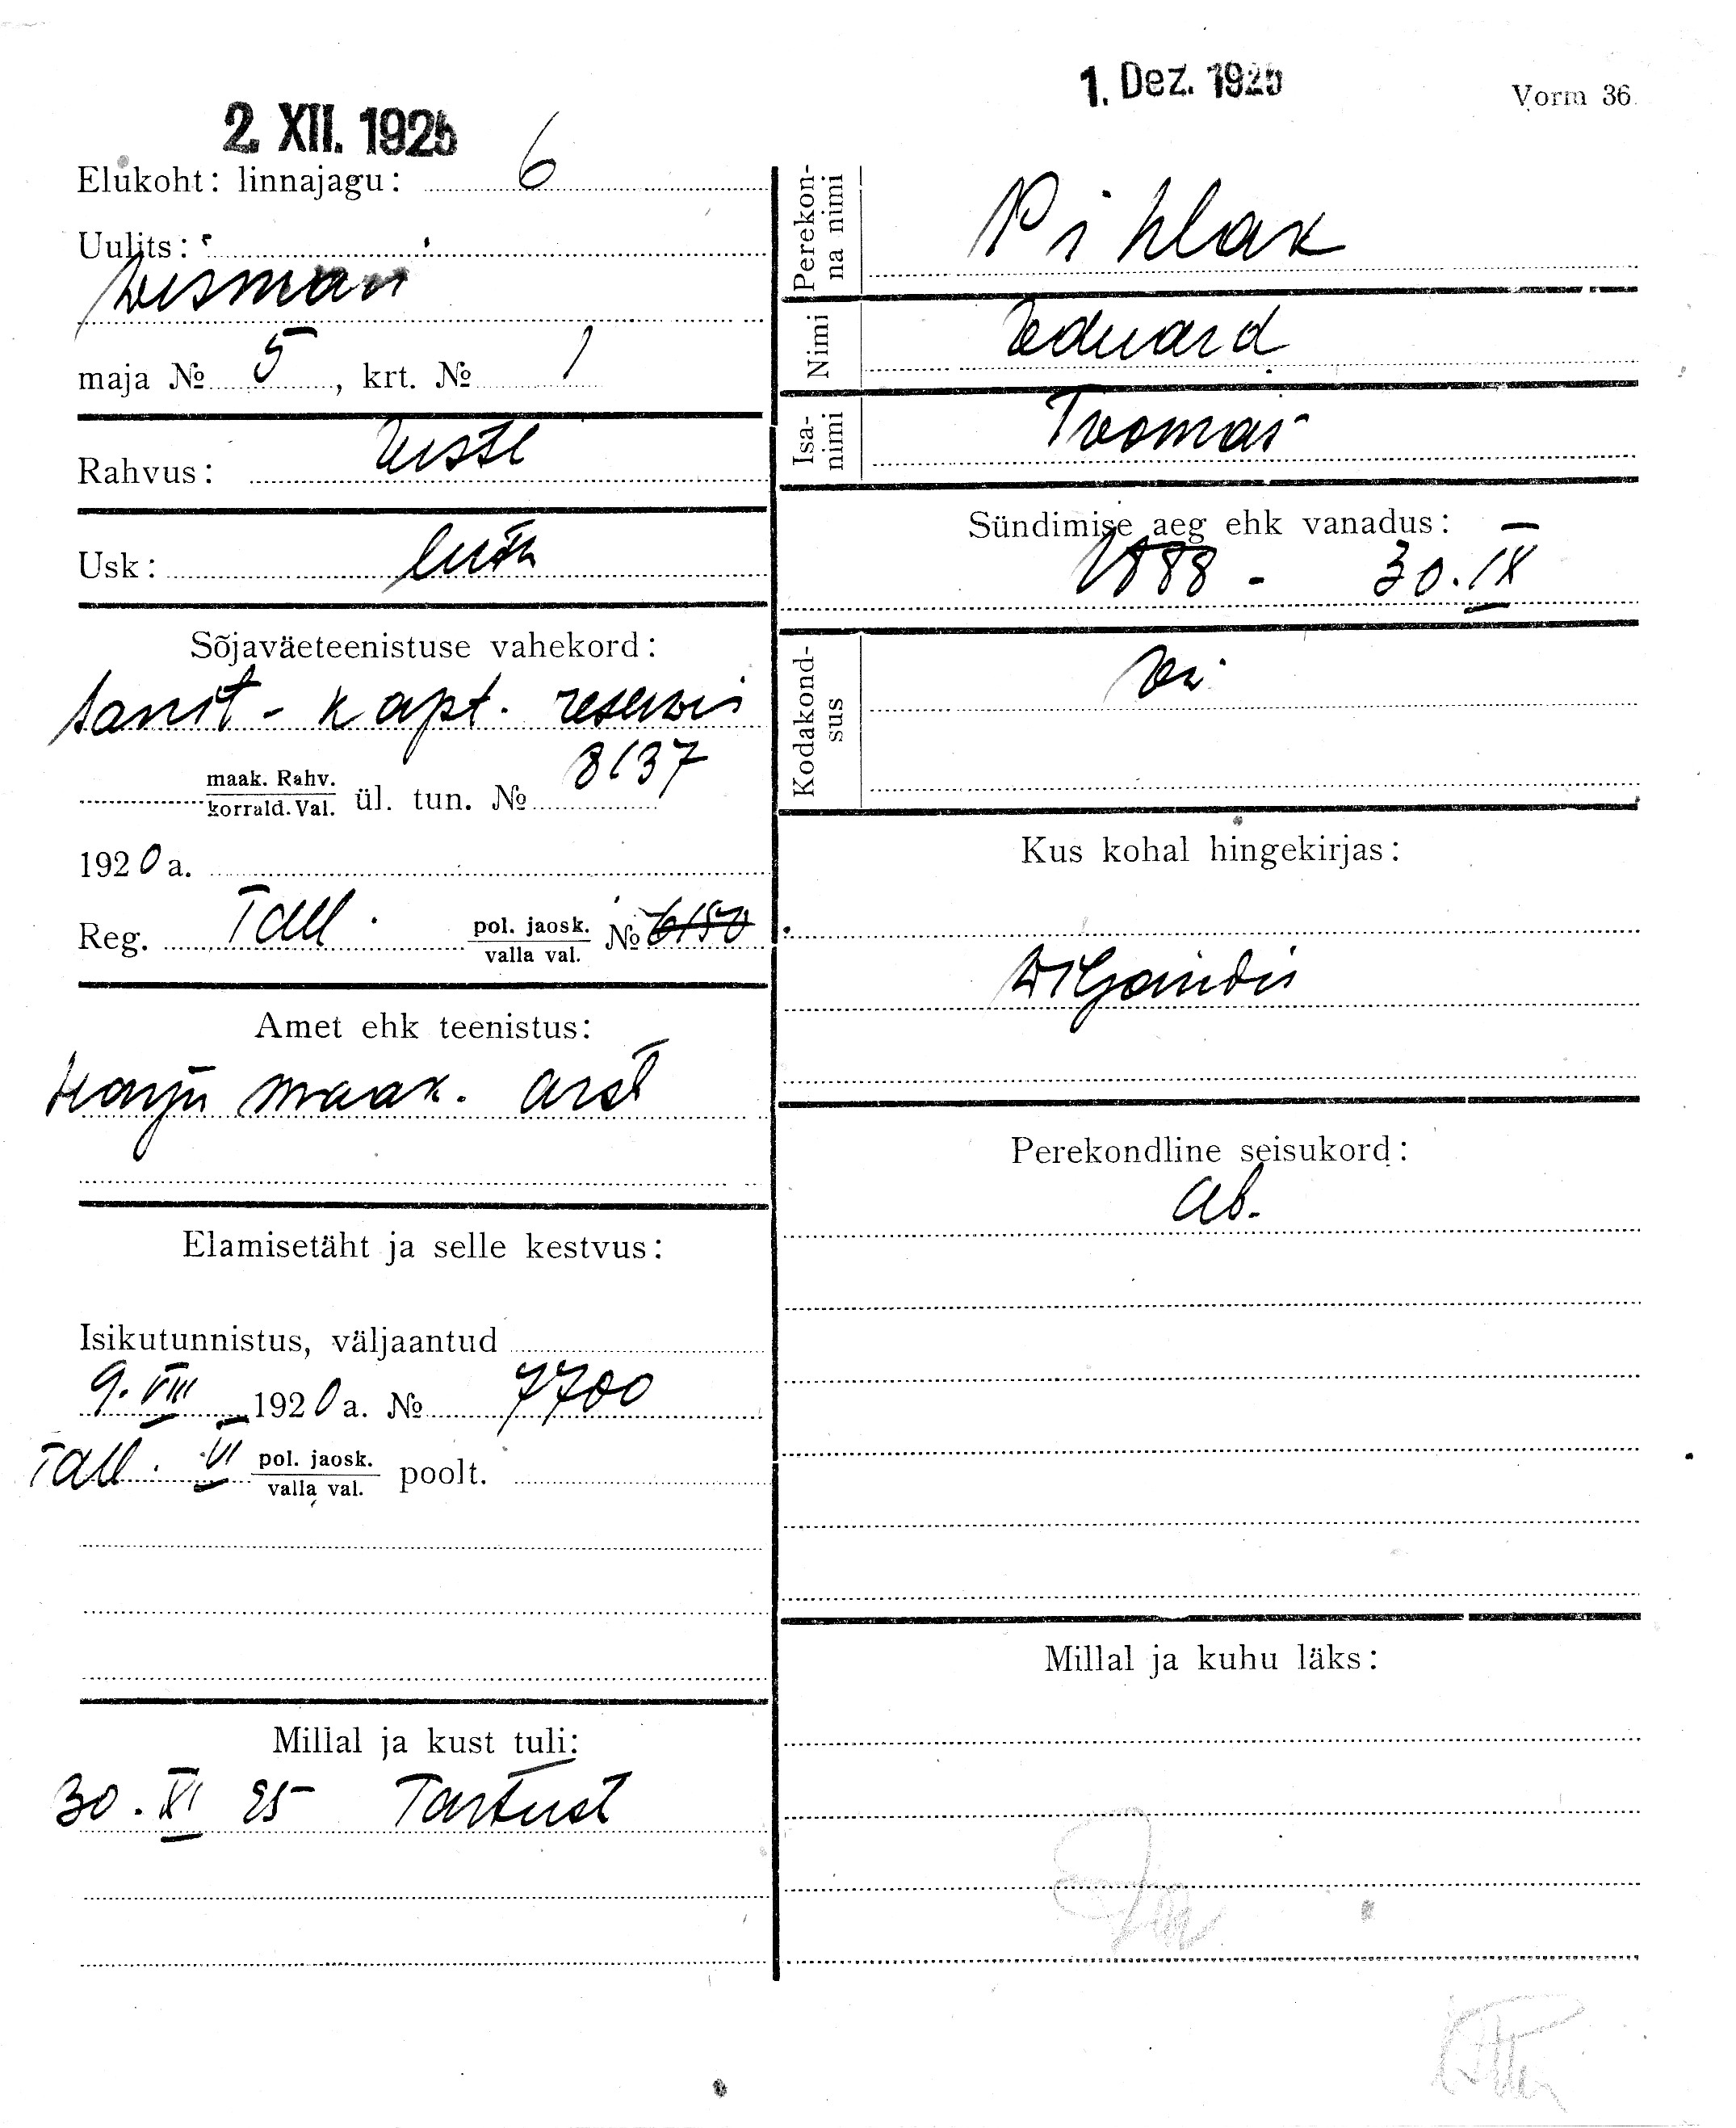 1. Dez. 1925
Vorm 36.
2. XII. 1925
Elukoht: linnajagu: 6
Uulits:
Wisman
maja № 5, krt. № 1
Rahvus: Eesti
Usk: luth
Sõjaväeteenistuse vahekord:
Sanit-kapt. reservis
maak. Rahv.
korrald. Val. ül. tun. № 8137
1920 a.
Reg. Tall. pol. jaosk. №
valla val.
Amet ehk teenistus:
Harju maak. arst
Elamisetäht ja selle kestvus:
Isikutunnistus, väljaantud
9. VIII 1920 a. № 7700
Tall. VI pol. jaosk. poolt.
valla val.
Millal ja kust tuli:
30. XI 25 Tartust
Perekon-
na nimi
Pihlak
Nimi Eduard
Isa-
nimi
Toomas
Sündimise aeg ehk vanadus:
1888 - 30. IX
Kodakond-
sus
Kus kohal hingekirjas:
Wiljandis
Perekondline seisukord:
ab.
Millal ja kuhu läks: